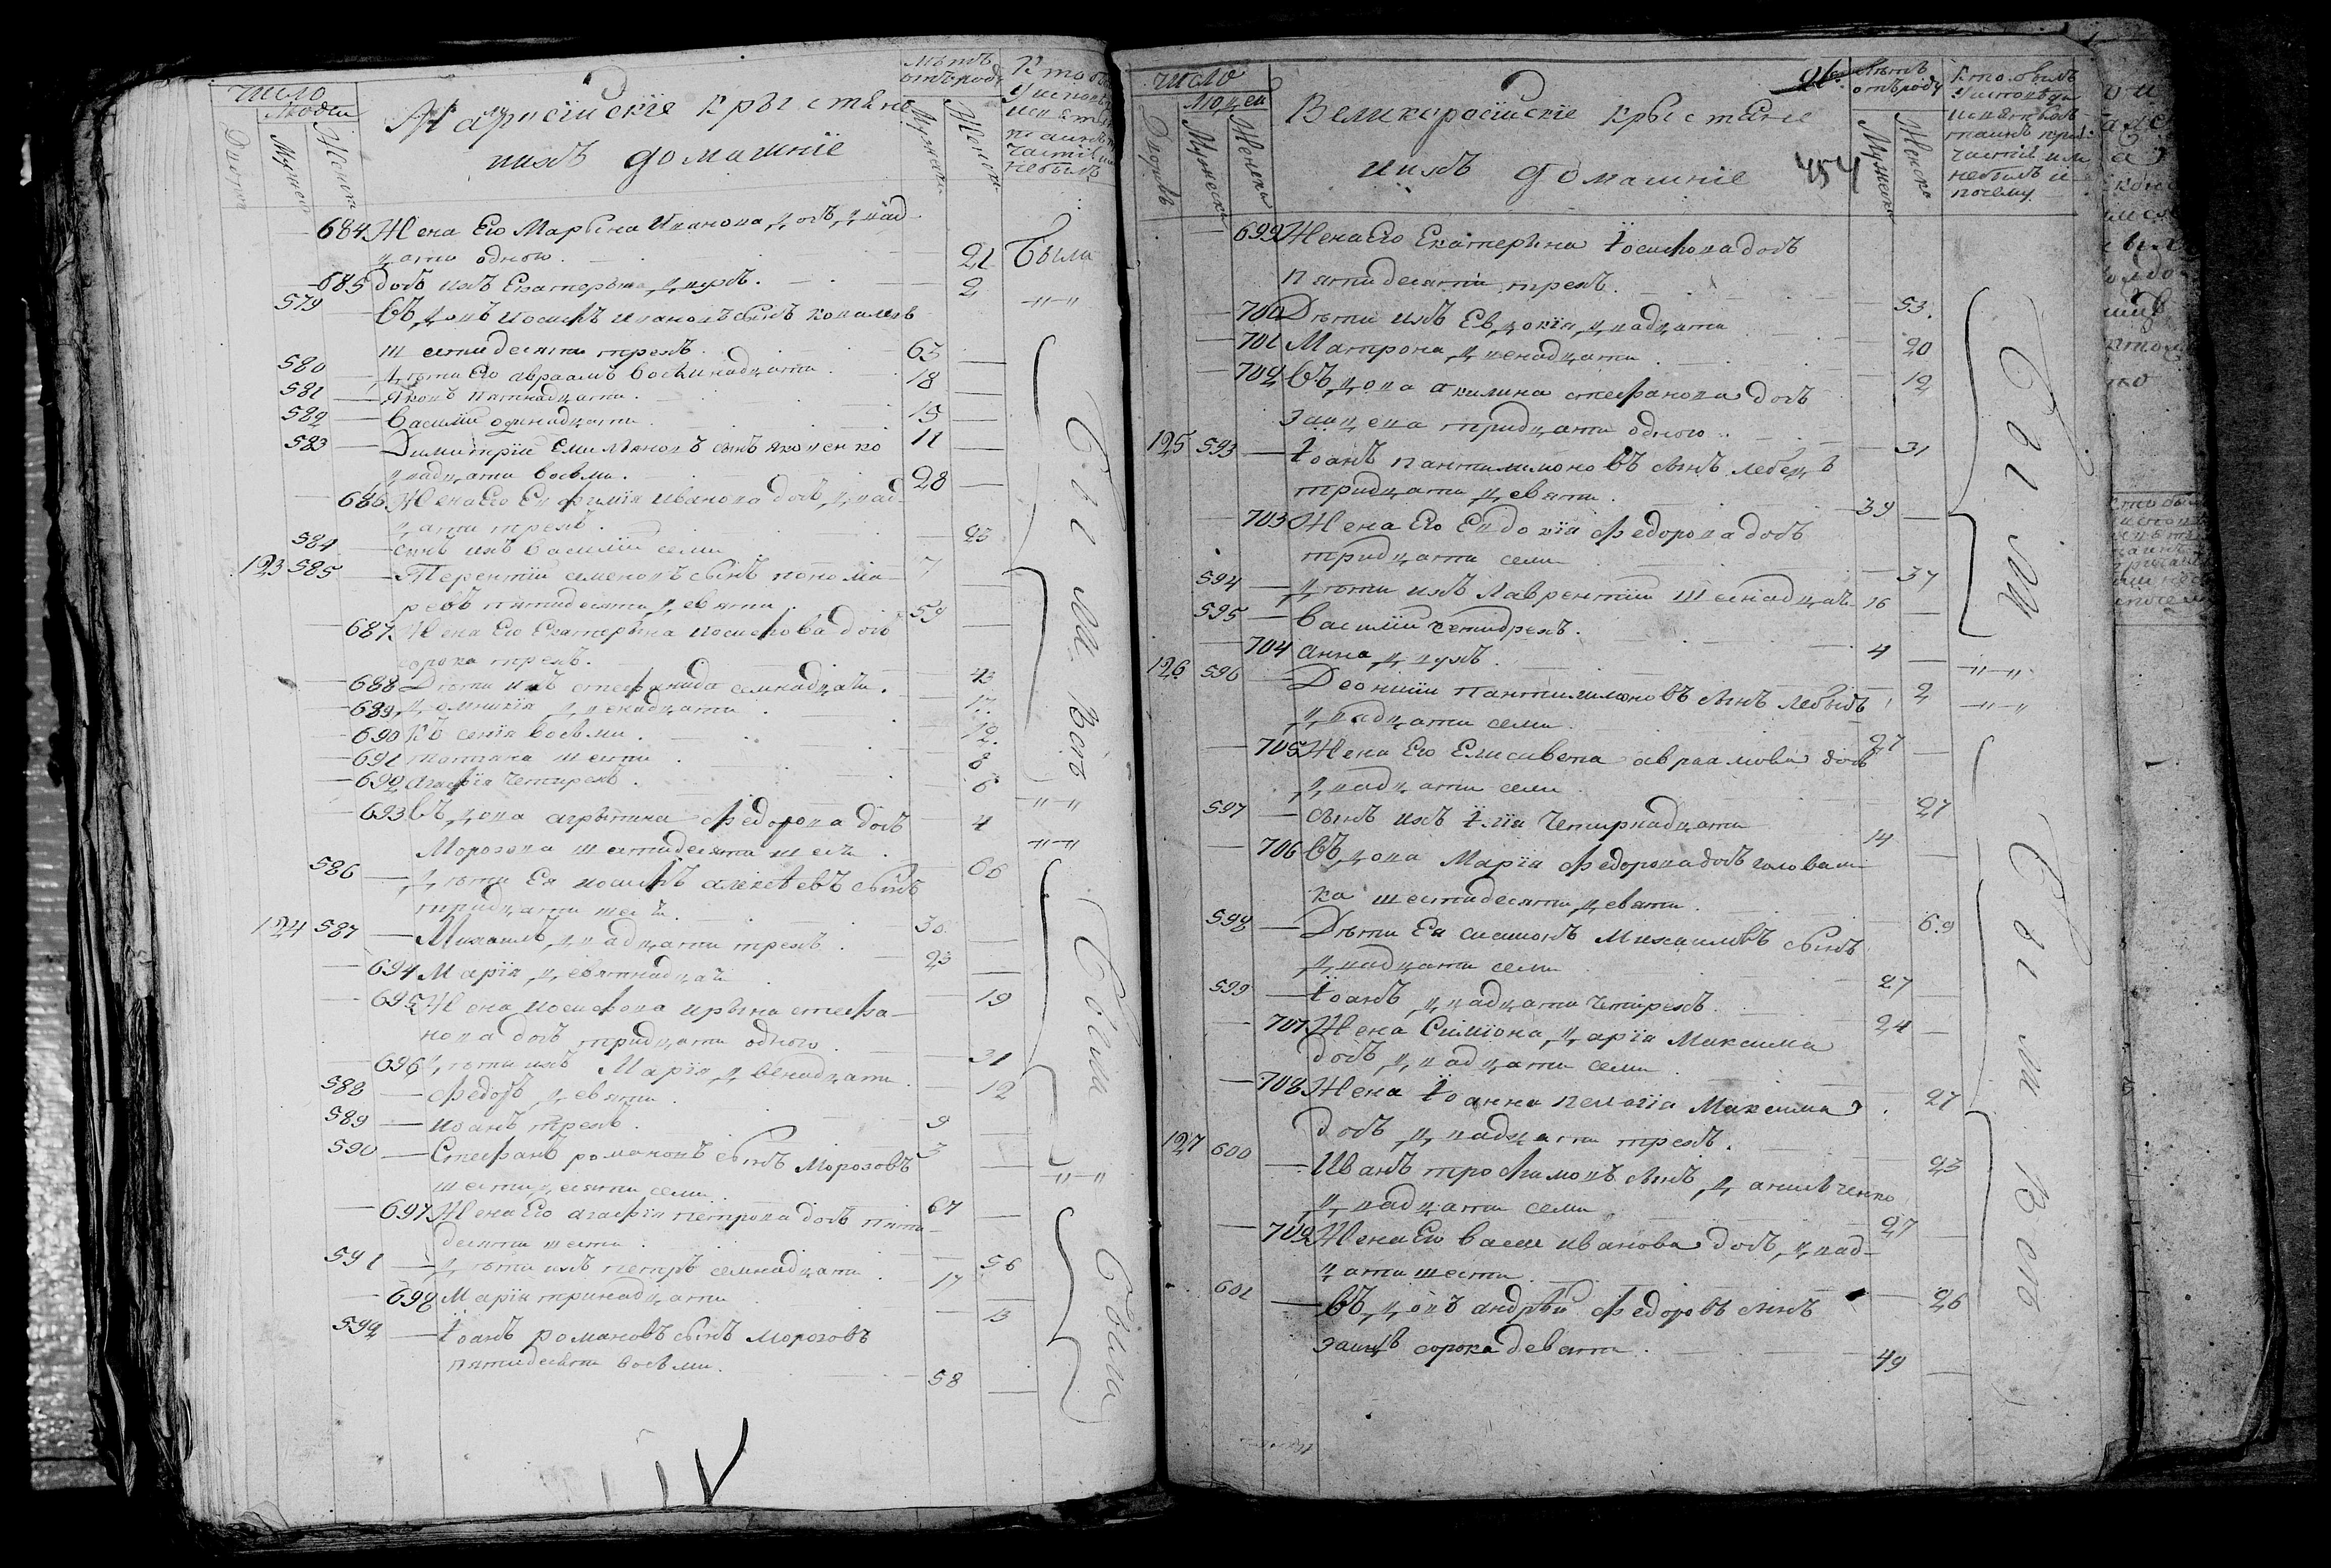 число
людей
Дворов
Мужеск
Женск
Малоросийскіе крыстяне
ихъ домашніе
Лѣтъ
отъ роду
Мужеска
Женска
684 Жена Его Марѣна Иванова дочь двад
цати одного. 21 Была
685 дочь ихъ Екатерѣна двухъ. 2 "—"
579 — Въдовъ иосифъ ивановъ сынъ ковалевъ
шестидесяти трехъ. 63 —
580 — дѣти Его авраамъ восемнадцати. 18 —
581 — Яковъ пятнадцати. 15 —
582 — василій одинадцати. 11 —
583 — Димитрій Емиляновъ сынъ яковенко
двадцати восьми. 28 —
686 Жена Его Евфимія иванова дочь двад-
цати трехъ. 23
584 — сынъ ихъ василій семи 7
123 585 — Терентій семеновъ сынъ понома-
ревъ пятидесяти девяти. 59 —
687 Жена Его Екатерѣна иосифова дочь
сорока трехъ. 43
688 Дѣти ихъ стефанида семнадцати. 17.
689 домникія двенадцати 12.
690 Ксенія восьми. 8
691 татіана шести 6
692 Агафія четирехъ. 4 "—"
693 Въдова агрыпина федорова дочь
Морозова шестидесяти шести. 66 "—"
586 — дѣти Ея иосифъ алексѣевъ сынъ
тридцати шести. 36.
124 587 — Михаилъ двадцати трехъ. 23 —
694 Марія девятнадцати 19
695 Жена иосифова ирѣна стефа-
нова дочь тридцати одного. 31
696 дѣти ихъ Марія двенадцати. 12
588 — федоръ девяти. 9 —
589 — иоанъ трехъ. 3 — "—"
590 — Стефанъ романовъ сынъ Морозовъ
шестидесяти семи 67 —
697 Жена Его агафія петрова дочь пяти-
десяти шести. 56
591 — дѣти ихъ петръ семнадцати. 17 —
698 Марія тринадцати 13
592 — іоанъ романовъ сынъ морозовъ
пятидесяти восьми. 58 —
Были Всѣ
Были
Были
число
людей
Дворовъ
Мужеска
Женска
Великоросійскіе крыстяне
ихъ домашніе
454
Лѣтъ
отъ роду
Мужеска
Женска
Кто быль
699 Жена Его Екатерѣна іосифова дочь
пятидесяти трехъ. 53.
700 Дѣти ихъ Евдокія двадцати 20
701 Матрона двенадцати 12
702 Въдова акилина стефанова дочь
заицева тридцати одного. 31
125 593 — іоанъ пантилимоновъ сынъ лебедь
тридцати девяти. 39 —
703 Жена Его Евдокія федорова дочь
тридцати семи 37
594 — дѣти ихъ Лаврентій шеснадцать 16 —
595 — василій четирехъ. 4 — "—"
704 анна двухъ. 2 "—"
126 596 — Деонисій пантилимоновъ сынъ лебыдь
двадцати семи 27 —
705 Жена Его Елисавета авраамова дочь
двадцати семи 27
597 — сынъ ихъ Ілія четырнадцати 14 —
706 Въдова Марія федорова дочь головаш
ка шестидесяти девяти. 69
598 — Дѣти Ея симионъ Михаиловъ сынъ
двадцати семи 27 —
599 — Іоанъ двадцати четирехъ. 24 —
707 Жена Симіона дарія Максима
дочь двадцати семи 27
708 Жена Іоанна пелагія Максима
дочь двадцати трехъ. 23
127 600 — Иванъ трофимовъ сынъ данильченко
двадцати семи 27 —
709 Жена Его васи иванова дочь двад-
цати шести 26
601 — Въдовъ андрѣй федоровъ сынъ
заицъ сорока девяти. 49 —
Были
Были Всѣ